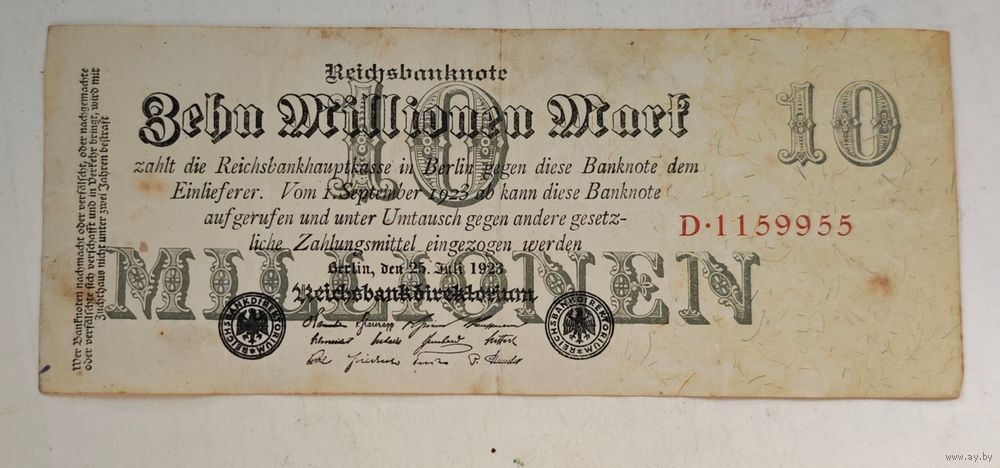 Reichsbanknote
Zehn Millionen Mark
10
10
zahlt die Reichsbankhauptkasse in Berlin gegen diese Banknote dem
Einlieferer. Vom 1. September 1923 ab kann diese Banknote
aufgerufen und unter Umtausch gegen andere gesetz-
liche Zahlungsmittel eingezogen werden
D·1159955
MILLIONEN
Berlin, den 25. Juli 1923
Reichsbankdirektorium
REICHSBANKDIREKTORIUM
REICHSBANKDIREKTORIUM
Wer Banknoten nachmacht oder verfälscht, oder nachgemachte
oder verfälschte sich verschafft und in Verkehr bringt, wird mit
Zuchthaus nicht unter zwei Jahren bestraft
www.ay.by